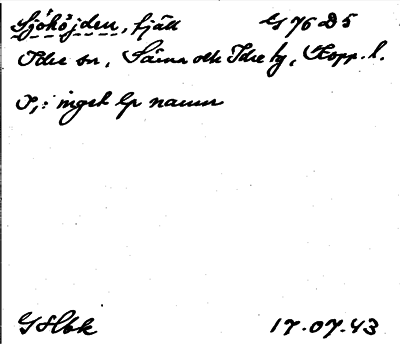 Sjöhöjden, fjäll G 76 D 5
Idre sn, Särna och Idre tg, Kopp. l.
I,: inget lp namn
GHbk 17.07.43